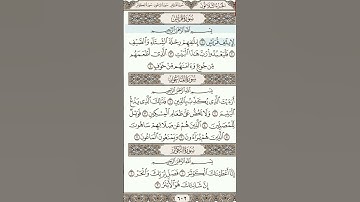 سُورَةُ قُرَيْشٍ
بِسْمِ اللَّهِ الرَّحْمَٰنِ الرَّحِيمِ
لِإِيلَافِ قُرَيْشٍ ١ إِيلَافِهِمْ رِحْلَةَ الشِّتَاءِ وَالصَّيْفِ
٢ فَلْيَعْبُدُوا رَبَّ هَٰذَا الْبَيْتِ ٣ الَّذِي أَطْعَمَهُم
مِّن جُوعٍ وَآمَنَهُم مِّنْ خَوْفٍ ٤
سُورَةُ الْمَاعُونِ
بِسْمِ اللَّهِ الرَّحْمَٰنِ الرَّحِيمِ
أَرَأَيْتَ الَّذِي يُكَذِّبُ بِالدِّينِ ١ فَذَٰلِكَ الَّذِي يَدُعُّ
الْيَتِيمَ ٢ وَلَا يَحُضُّ عَلَىٰ طَعَامِ الْمِسْكِينِ ٣ فَوَيْلٌ
لِّلْمُصَلِّينَ ٤ الَّذِينَ هُمْ عَن صَلَاتِهِمْ سَاهُونَ
٥ الَّذِينَ هُمْ يُرَاءُونَ ٦ وَيَمْنَعُونَ الْمَاعُونَ ٧
سُورَةُ الْكَوْثَرِ
بِسْمِ اللَّهِ الرَّحْمَٰنِ الرَّحِيمِ
إِنَّا أَعْطَيْنَاكَ الْكَوْثَرَ ١ فَصَلِّ لِرَبِّكَ وَانْحَرْ ٢
إِنَّ شَانِئَكَ هُوَ الْأَبْتَرُ ٣
٦٠٢